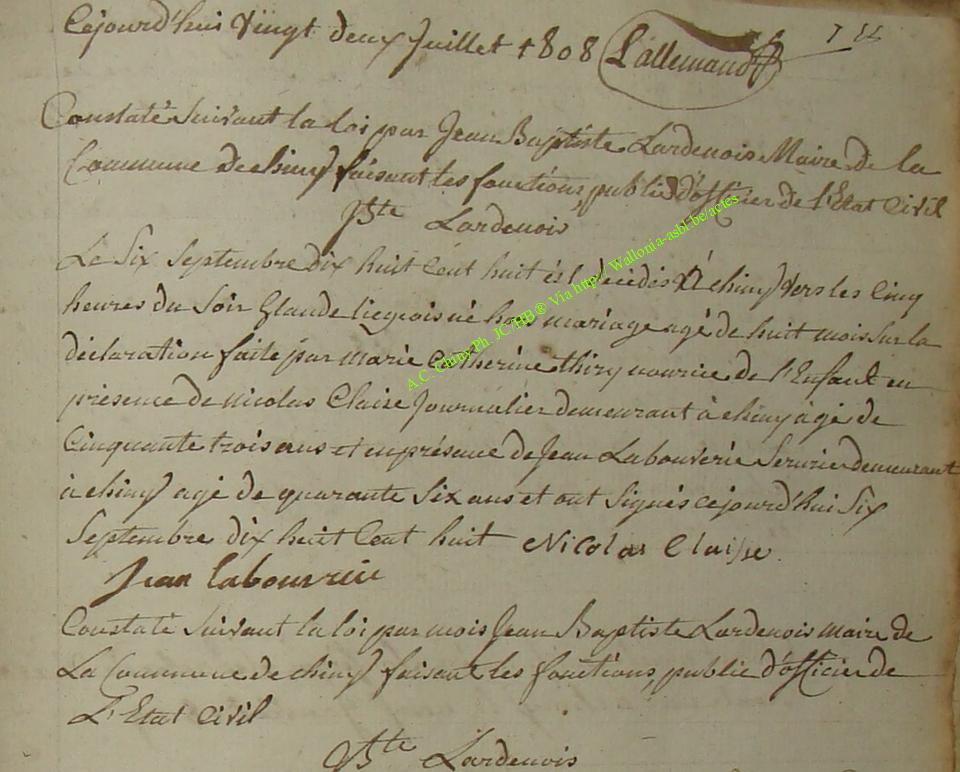 Cejourd'hui Vingt deux Juillet 1808 Lallemand
Constaté suivant la loi par Jean Baptiste Lardenois Maire de la
Commune de chiny faisant les fonctions public d'officier de l'Etat Civil
JBte Lardenois
Le Six Septembre dix huit Cent huit est décédés A chiny vers les Cinq
heures du Soir Glaude liegeois né hors mariage agé de huit mois sur la
déclaration faite par marie Catherine thiry nourice de l'Enfant en
présence de nicolas Claise Journalier demeurant à chiny agé de
Cinquante trois ans et en présence de Jean Labouverie Serurier demeurant
à chiny agé de quarante Six ans et ont Signés cejourd'hui Six
Septembre dix huit Cent huit Nicolas Claisse
Jean labouvrie
Constaté suivant la loi par mois Jean Baptiste Lardenois maire de
La Commune de chiny faisant les fonctions public d'officier de
L'Etat Civil
JBte Lardenois
A.C. Chiny Ph. JC/HB® Via http// Wallonia-asbl.be/actes